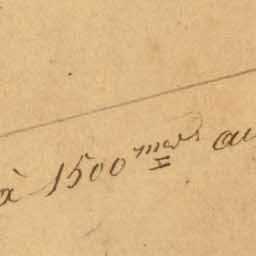 à 1500 mes au